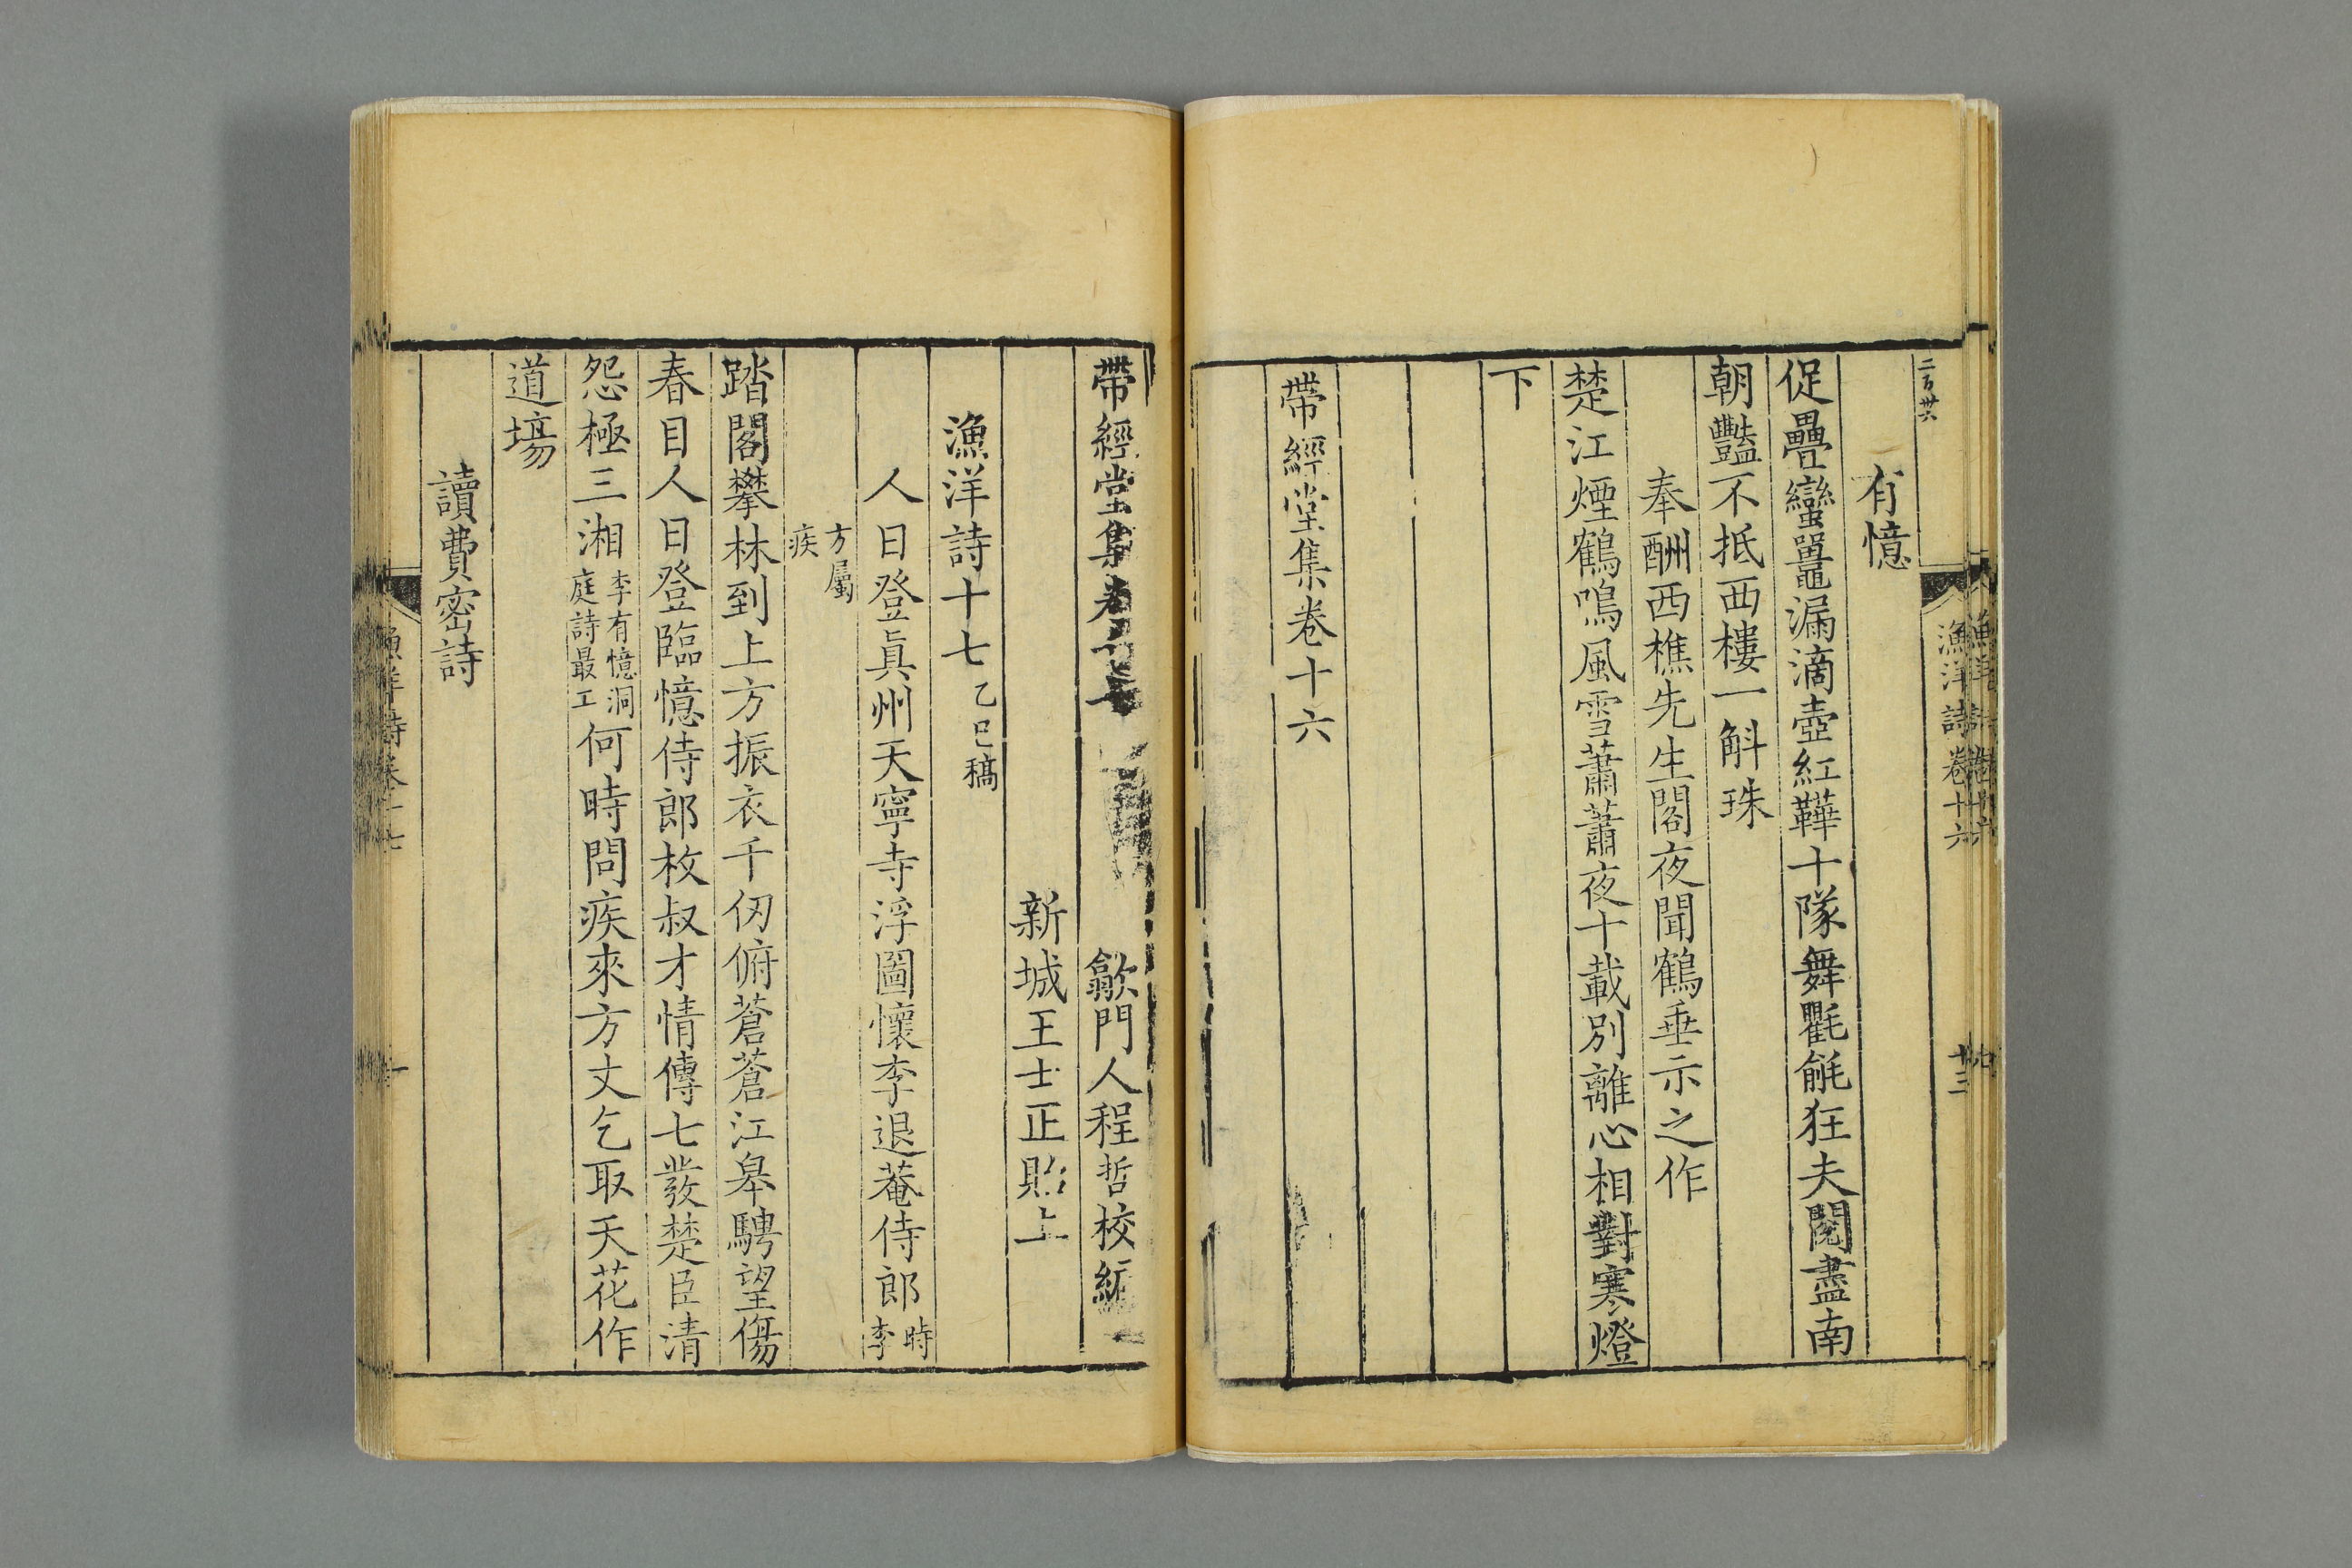 二百廿六
漁洋詩卷十六
十三
有憶
促疊蠻鼉漏滴壺紅鞾十隊舞氍毹狂夫閱盡南
朝豔不抵西樓一斛珠
奉酬西樵先生閣夜聞鶴垂示之作
楚江煙鶴鳴風雪蕭蕭夜十載別離心相對寒燈
下
帶經堂集卷十六
帶經堂集卷十七 歙門人程哲校編
新城王士正貽上
漁洋詩十七 乙巳稿
人日登眞州天寧寺浮圖懷李退菴侍郎 時李
方屬疾
踏閣攀林到上方振衣千仞俯蒼蒼江皋騁望傷
春目人日登臨憶侍郎枚叔才情傳七發楚臣清
怨極三湘 李有憶洞庭詩最工 何時問疾來方丈乞取天花作
道場
讀費密詩
漁洋詩卷十七
一